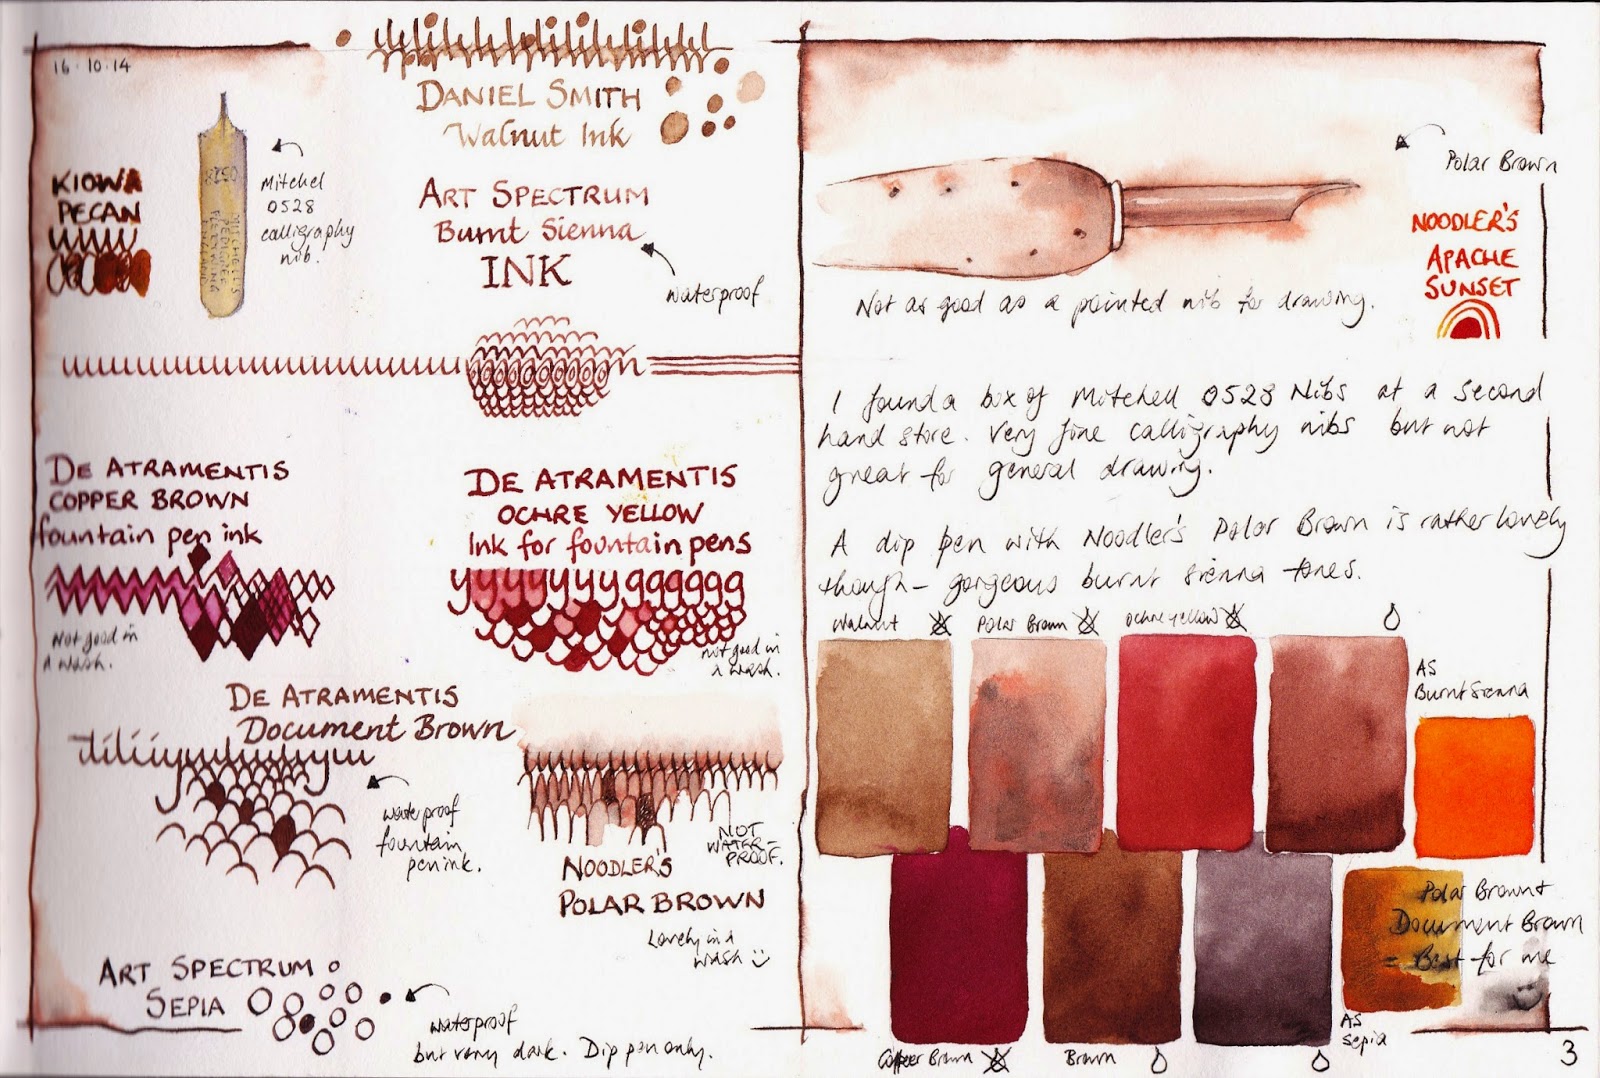 16·10·14
DANIEL SMITH
Walnut Ink
KIOWA
PECAN
0528
MITCHELL'S
PEDIGREE
ENGLAND
Mitchel
0528
calligraphy
nib.
ART SPECTRUM
Burnt Sienna
INK
waterproof
DE ATRAMENTIS
COPPER BROWN
fountain pen ink
Not good in
a wash.
DE ATRAMENTIS
OCHRE YELLOW
Ink for fountain pens
not good in
a wash.
DE ATRAMENTIS
Document Brown
waterproof
fountain
pen ink.
NOT
WATER-
PROOF.
NOODLER'S
POLAR BROWN
Lovely in a
wash
ART SPECTRUM
SEPIA
waterproof
but very dark. Dip pen only.
Polar Brown
NOODLER'S
APACHE
SUNSET
Not as good as a pointed nib for drawing.
I found a box of Mitchell 0528 Nibs at a second
hand store. Very fine calligraphy nibs but not
great for general drawing.
A dip pen with Noodler's Polar Brown is rather lovely
though - gorgeous burnt sienna tones.
Walnut
Polar Brown
Ochre yellow
AS
Burnt Sienna
Polar Brown +
Document Brown
= Best for me
AS
Sepia
Copper Brown
Brown
3